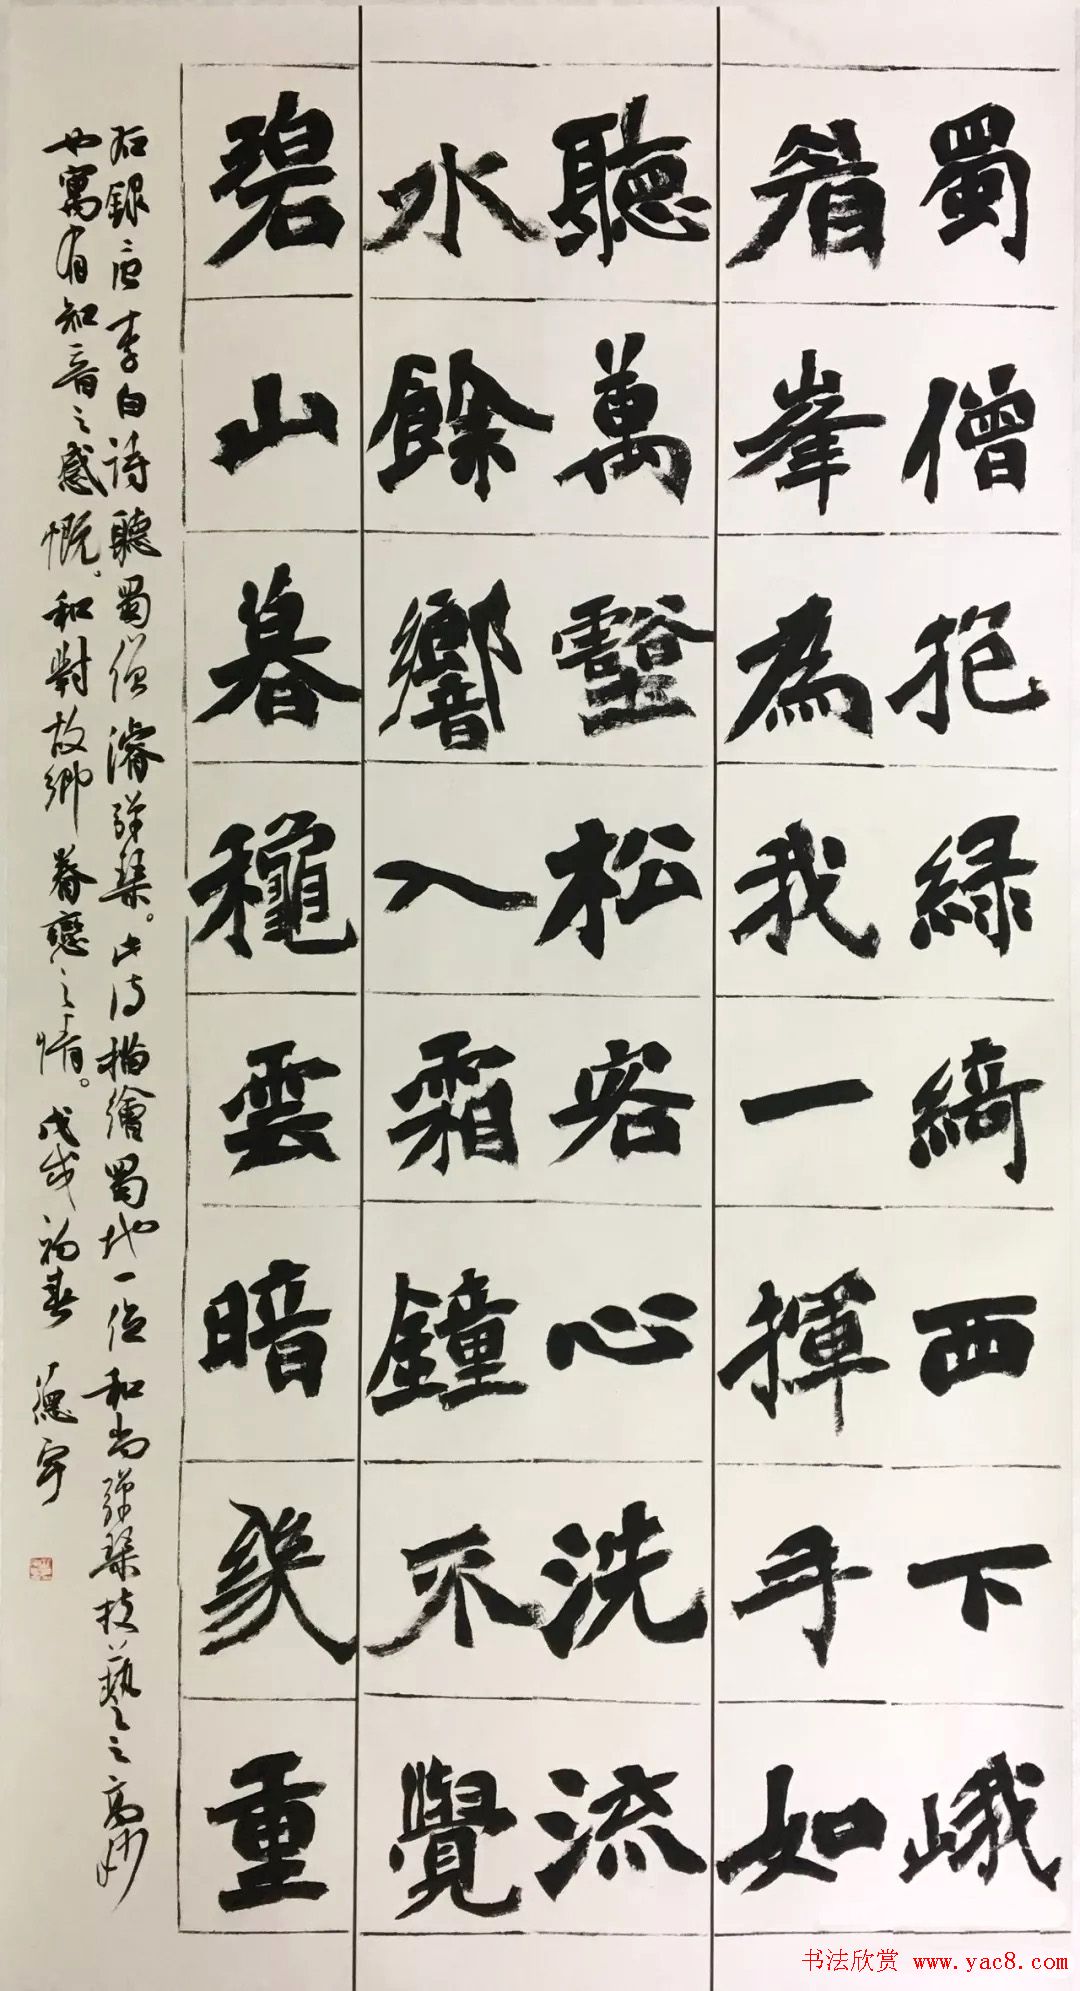 蜀僧抱綠綺西下峨
眉峯為我一揮手如
聽萬壑松客心洗流
水餘響入霜鐘不覺
碧山暮穐雲暗幾重
右録唐李白詩聽蜀僧濬弹琴。此诗描繪蜀地一位和尚弹琴技藝之高妙
也寓有知音之感慨。和對故鄉眷戀之情。戊戌初春 德宇
书法欣赏 www.yac8.com